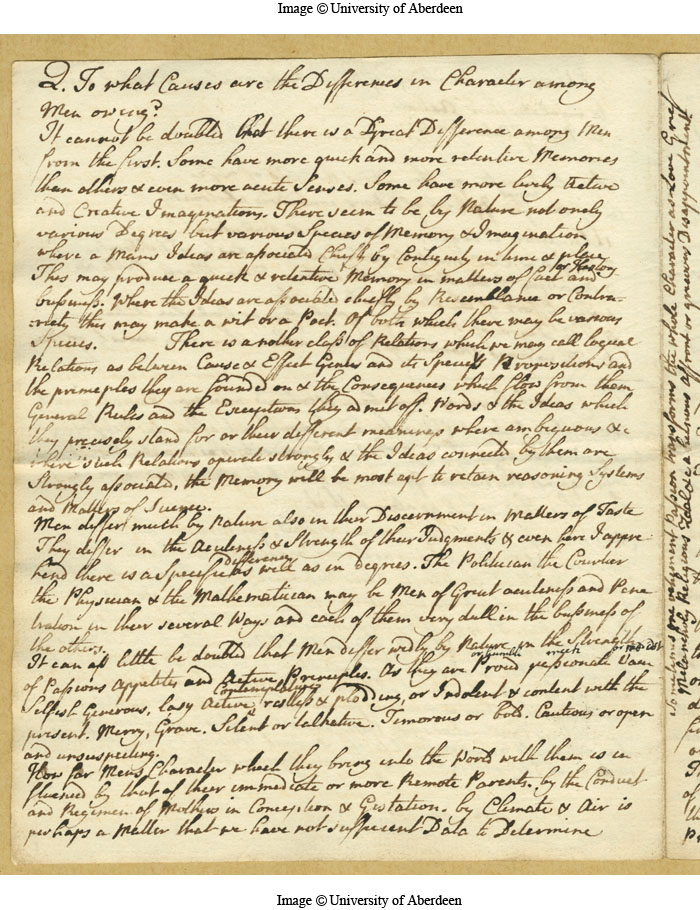 Image © University of Aberdeen
Q. To what Causes are the Differences in Character among
Men owing?
It cannot be doubted that there is a Great Difference among Men
from the first. Some have more quick and more retentive Memories
than others & even more acute Senses. Some have more lively Active
and Creative Imaginations. There seem to be by Nature not onely
various Degrees but various Species of Memory & Imagination
where a Mans Ideas are associated Chiefly by Contiguity in time & place
This may produce a quick & retentive Memory in matters of fact and
or History
bussiness. Where the Ideas are associated chiefly by Resemblance or Contra-
-riety this may make a wit or a Poet. Of both which there may be various
Species. There is another class of Relations which we may call logical
Relations as between Cause & Effect Genus and its Species Propositions and
the principles they are founded on & the Consequences which flow from them
General Rules and the Exceptions they admit off. Words & the Ideas which
they precisely stand for or their different meanings where ambiguous &c
where such Relations operate strongly & the Ideas connected by them are
Strongly associated, the Memory will be most apt to retain reasoning Systems
and Matters of Science.
Men differ much by Nature also in their Discernment in Matters of Taste
They differ in the Acuteness & Strength of their Judgments & even here I appre-
difference
hend there is a Specifick as well as in degrees. The Politician the Courtier
the Physician & the Mathematician may be Men of Great acuteness and Pene
tration in their several Ways and each of them very dull in the bussiness of
the others.
It can as little be doubted that Men differ widly by Nature in the Strength
or humble meek or modest
of Passions Appetites and Active Principles. As they are Proud passionate Vain
Contemplative
Selfish Generous, lasy Active, restless & plodding, or Indolent & content with the
present. Merry, Grave. Silent or talkative. Timorous or bold. Cautious or open
and unsuspecting.
How far Mens Character which they bring into the World with them is in
fluenced by that of their immediate or more Remote Parents. by the Conduct
and Regimen of Mothers in Conception & Gestation. by Climate & Air is
perhaps a Matter that we have not sufficient Data to Determine
Sometimes one vehement Passion transforms the whole Character as Love Grief
Melancholy Religious Zeal &c a grievous Disappointment
Image © University of Aberdeen